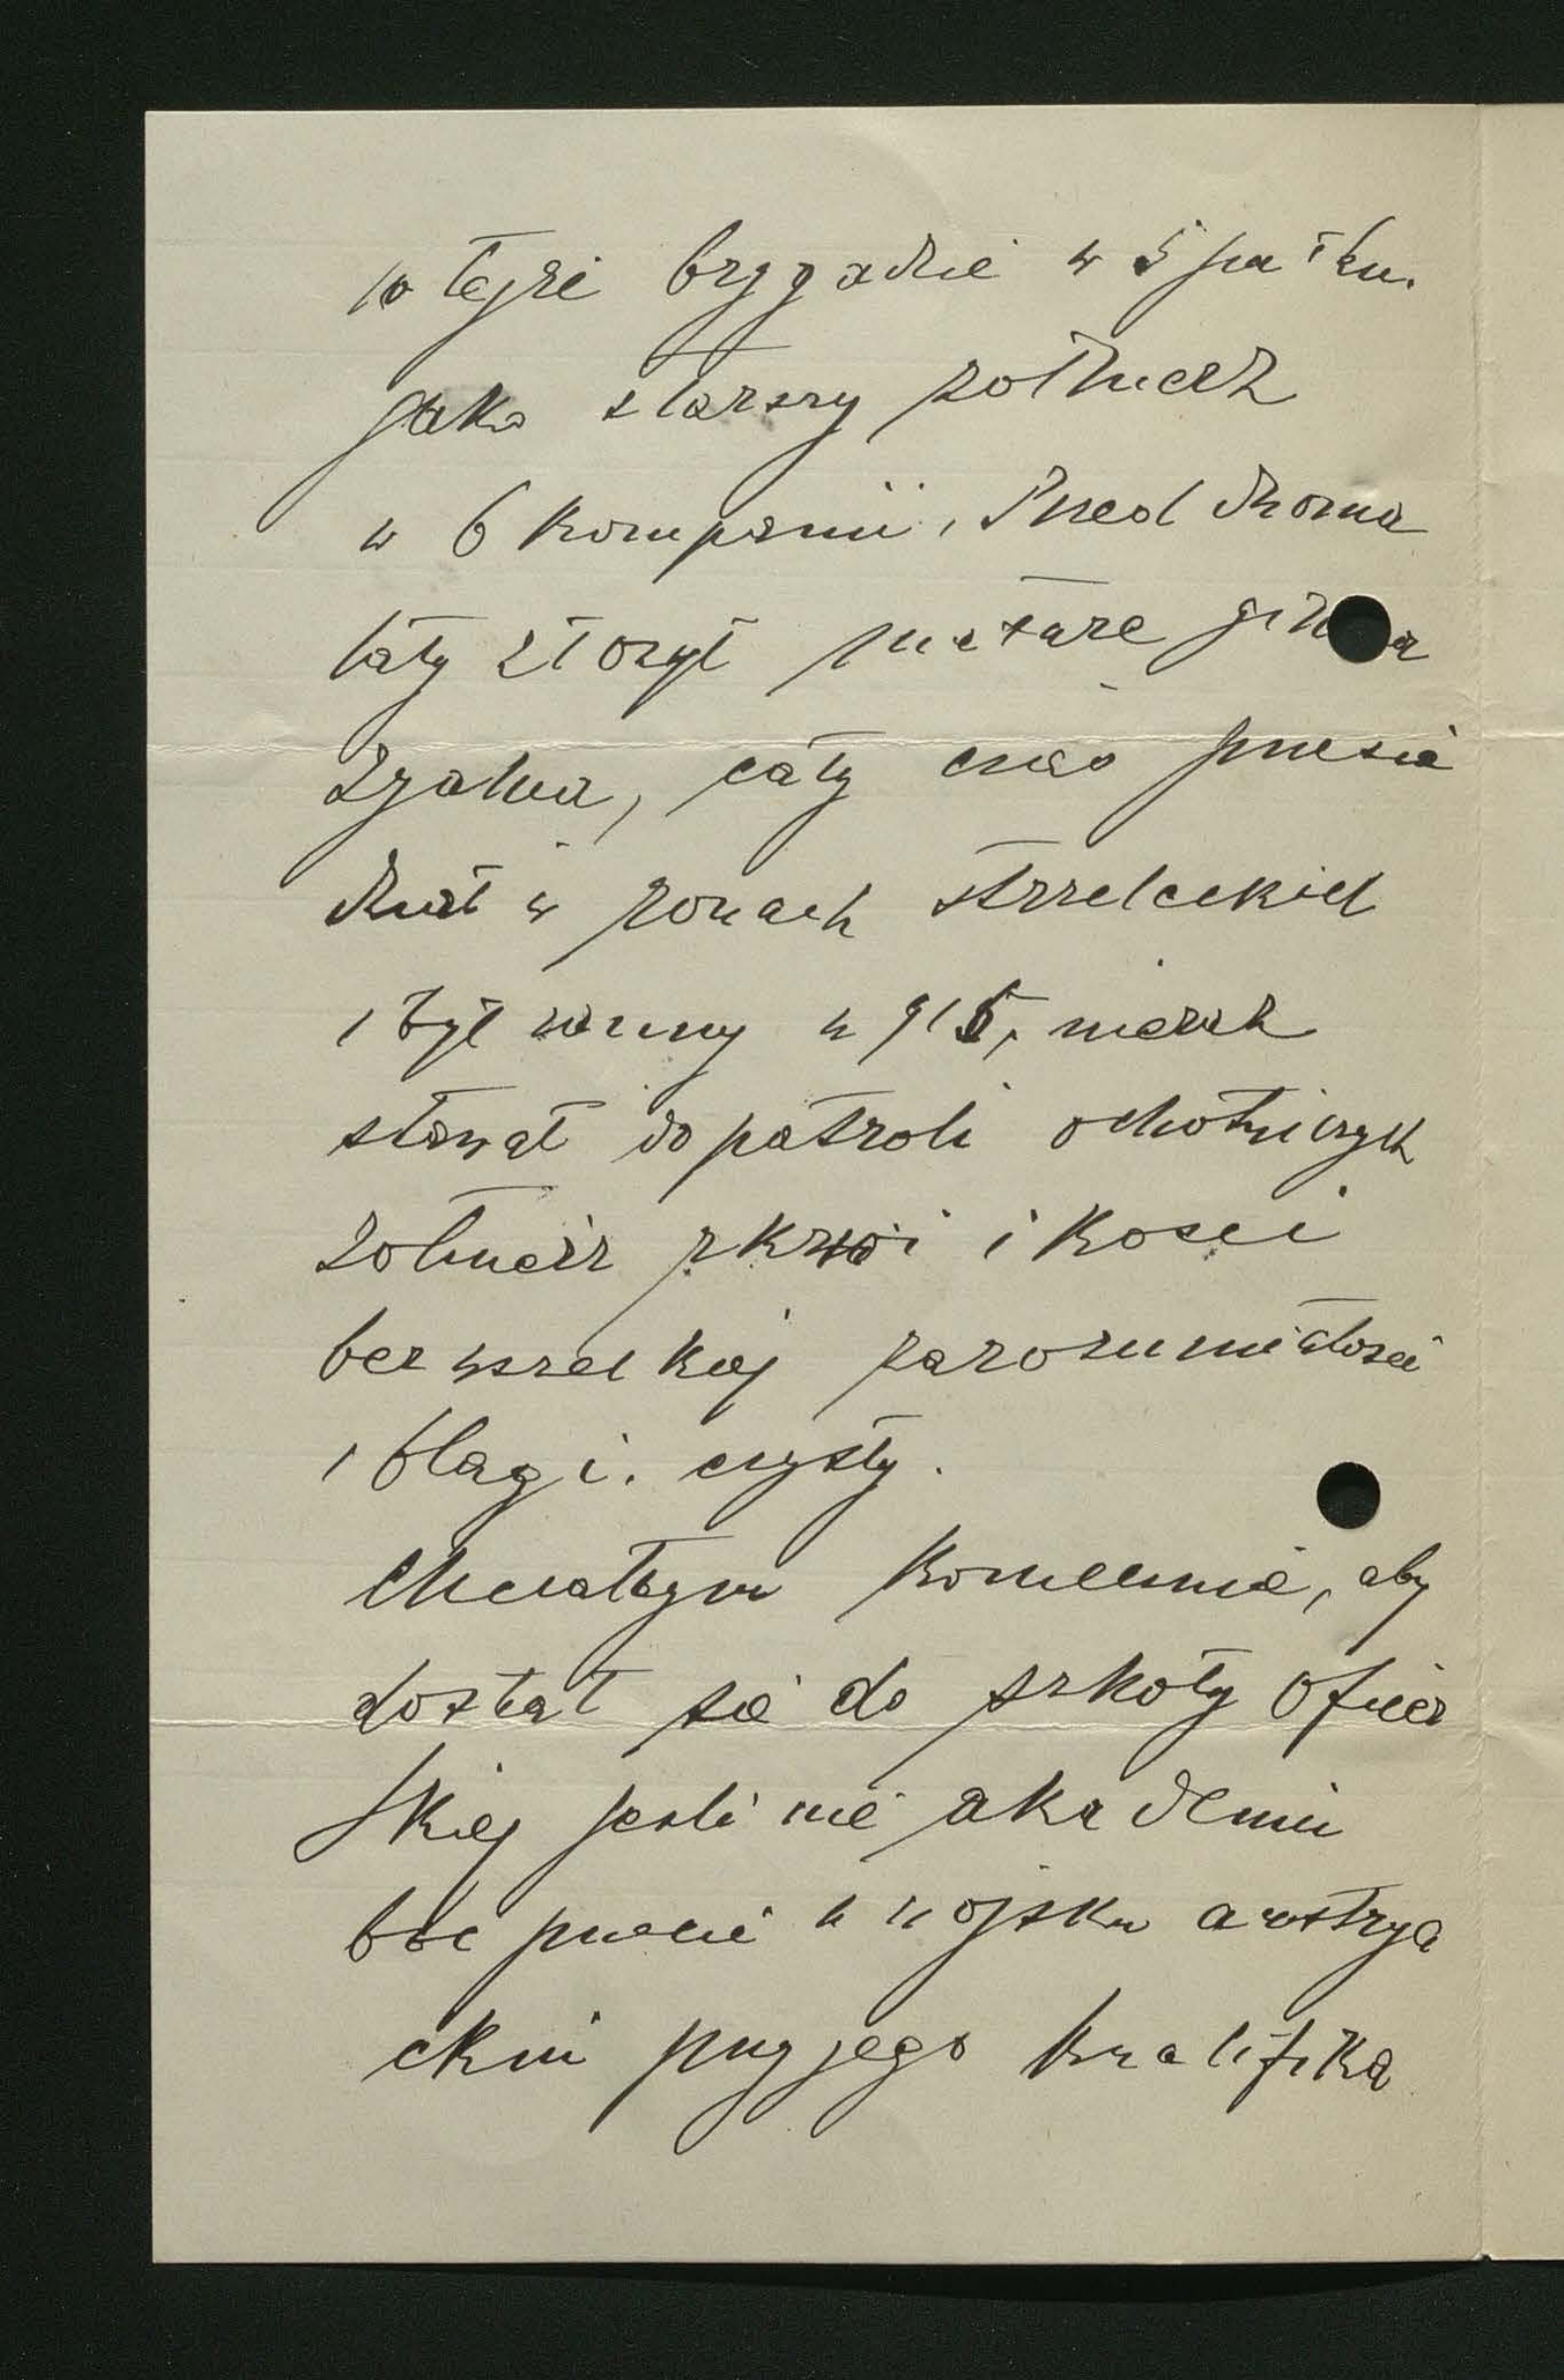 w tejże brygadzie w 5 pułku.
jako starszy żołnierz
w 6 kompanii, Przed dwoma
laty złożył maturę gim a
zyalną, cały czas przesie
dział w rowach strzeleckich
i był ranny w 915, nieraz
stawał do patroli ochotniczych
żołnierz z krwi i kości
bez wszelkiej zarozumiałości
i blagi. czysty.
Chciałbym koniecznie, aby
dostał się do szkoły oficer
skiej jeśli nie akademii
boć przecie w wojsku austrya
ckim przy jego kwalifika